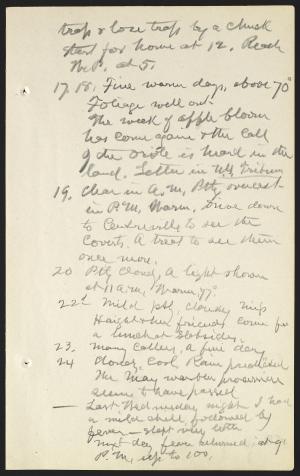 trap & lose trap by a chuck
start for home at 12. Reach
W.P. at 5.
17, 18, Fine warm days, above 70°
Foliage well out.
The week of apple bloom
has come again & the call
of the oriole is heard in the
land. Letter in NY Tribune
19. Clear in A.M. Ptly overcast
in P.M. Warm. Drive down
to Centreville to see the
Coverts. A treat to see them
once more.
20 Ptly cloudy, A light shower
at 11 A.M., Warm 77°.
22d Mild ptly cloudy Miss
Haight & her friends come for
a lunch at Slabsides.
23. Many callers, a fine day
24 Cloudy Cool Rain predicted
The May warbler
seem to have passed
— Last Wednesday night I had
a mild chill followed by
fever — slept very well
next day fever returned at 9
P.M. up to 100.